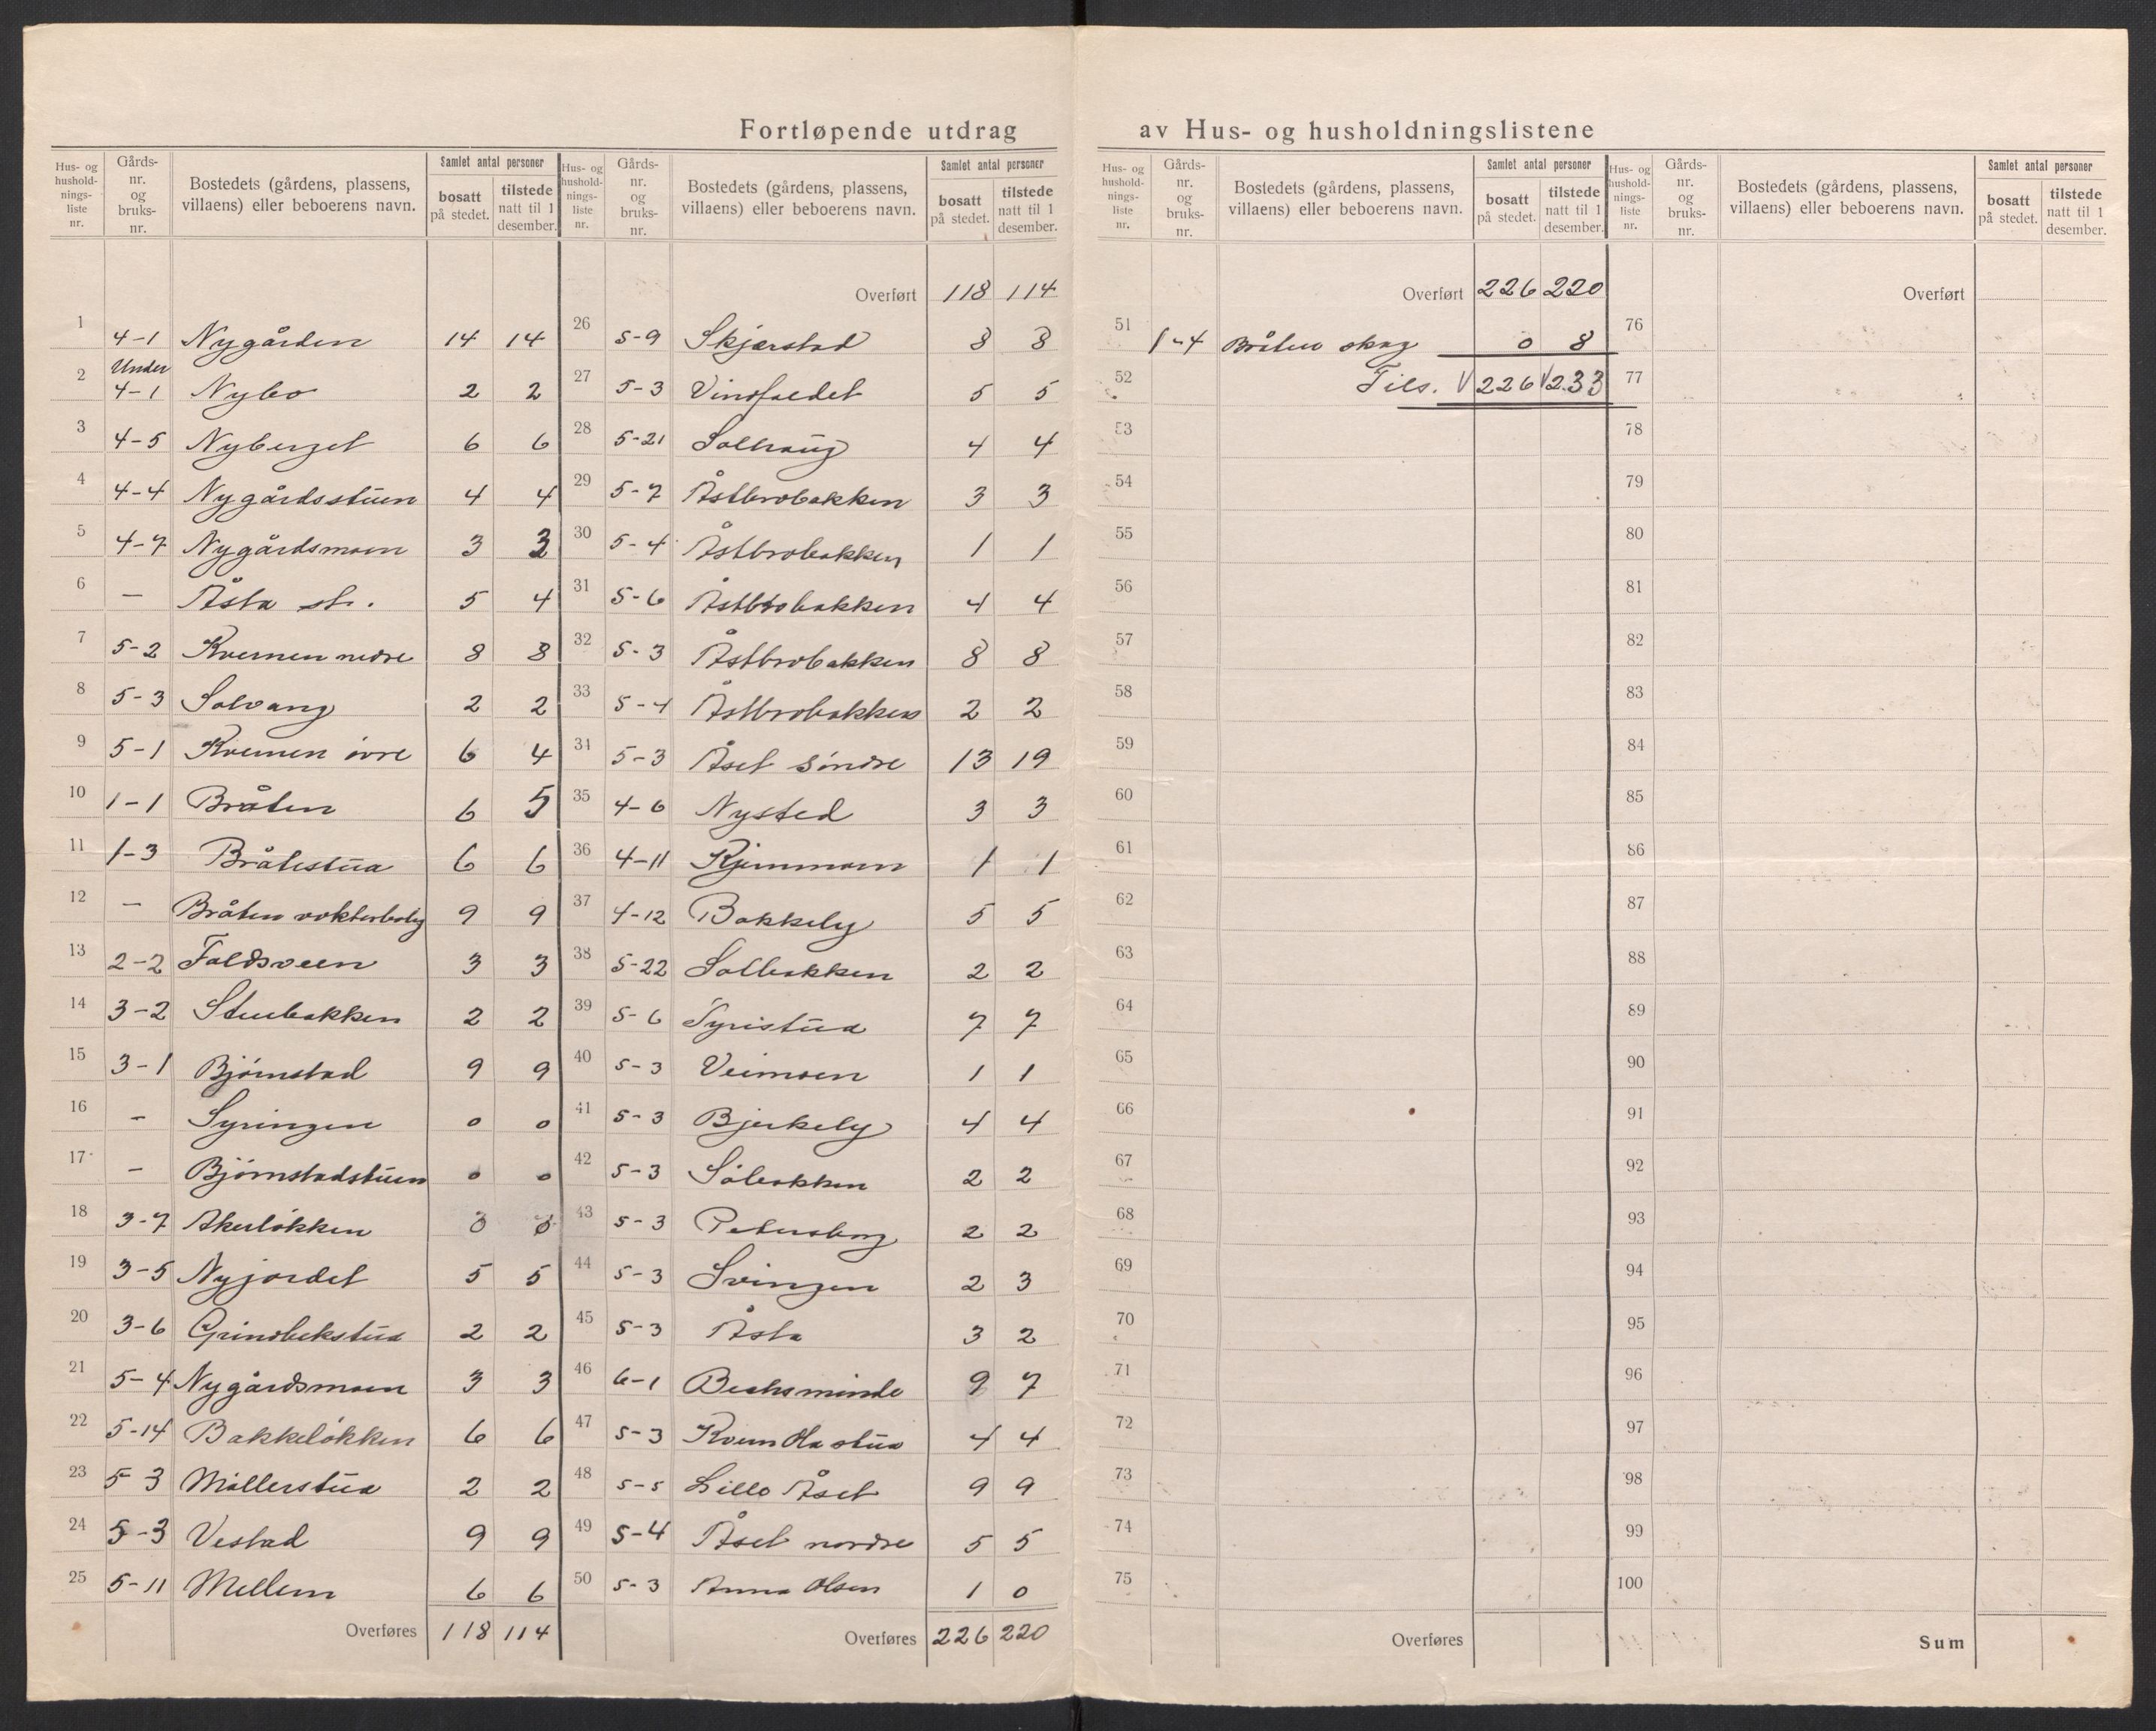 Fortløpende utdrag av Hus- og husholdningslistene
Hus- og hushold-nings-liste nr. | Gårds-nr. og bruks-nr. | Bostedets (gårdens, plassens, villaens) eller beboerens navn. | Samlet antal personer | bosatt på stedet. | tilstede natt til 1 desember.
1 4-1 Nygården 14 14
2 Under 4-1 Nybo 2 2
3 4-5 Nyberget 6 6
4 4-4 Nygårdsstuen 4 4
5 4-7 Nygårdsmoen 3 3
6 — Åsta st. 5 4
7 5-2 Kvernen nedre 8 8
8 5-3 Solvang 2 2
9 5-1 Kvernen övre 6 4
10 1-1 Bråten 6 5
11 1-3 Bråtestua 6 6
12 — Bråten vokterbolig 9 9
13 2-2 Faldsveen 3 3
14 3-2 Stubakken 2 2
15 3-1 Björnstad 9 9
16 - Syringen 0 0
17 - Björnstadstuen 0 0
18 3-7 Akerlökken 0 0
19 3-5 Nyjordet 5 5
20 3-6 Grindbekstua 2 2
21 5-4 Nygårdsmoen 3 3
22 5-14 Bakkelökken 6 6
23 5-3 Möllerstua 2 2
24 5-3 Vestad 9 9
25 5-11 Mellem 6 6
Overføres 118 114
Hus- og hushold-nings-liste nr. | Gårds-nr. og bruks-nr. | Bostedets (gårdens, plassens, villaens) eller beboerens navn. | Samlet antal personer | bosatt på stedet. | tilstede natt til 1 desember.
Overført 118 114
26 5-9 Skjærstad 8 8
27 5-3 Vindfaldet 5 5
28 5-21 Solhaug 4 4
29 5-7 Åstbrobakken 3 3
30 5-4 Åstbrobakken 1 1
31 5-6 Åstbrobakken 4 4
32 5-3 Åstbrobakken 8 8
33 5-4 Åstbrobakken 2 2
34 5-3 Åset söndre 13 19
35 4-6 Nysted 3 3
36 4-11 Kjernmoen 1 1
37 4-12 Bakkely 5 5
38 5-22 Solbakken 2 2
39 5-6 Tyristua 7 7
40 5-3 Veimoen 1 1
41 5-3 Bjerkely 4 4
42 5-3 Solbakken 2 2
43 5-3 Petersborg 2 2
44 5-3 Svingen 2 3
45 5-3 Åsta 3 2
46 6-1 Bechsminde 9 7
47 5-3 Kvern Ola stua 4 4
48 5-5 Lille Åset 9 9
49 5-4 Åset nordre 5 5
50 5-3 Anna Olsen 1 0
Overføres 226 220
Hus- og hushold-nings-liste nr. | Gårds-nr. og bruks-nr. | Bostedets (gårdens, plassens, villaens) eller beboerens navn. | Samlet antal personer | bosatt på stedet. | tilstede natt til 1 desember.
Overført 226 220
51 1-4 Bråten skog 0 8
52 Tils. √226 √233
53
54
55
56
57
58
59
60
61
62
63
64
65
66
67
68
69
70
71
72
73
74
75
Overføres
Hus- og hushold-nings-liste nr. | Gårds-nr. og bruks-nr. | Bostedets (gårdens, plassens, villaens) eller beboerens navn. | Samlet antal personer | bosatt på stedet. | tilstede natt til 1 desember.
Overført
76
77
78
79
80
81
82
83
84
85
86
87
88
89
90
91
92
93
94
95
96
97
98
99
100
Sum